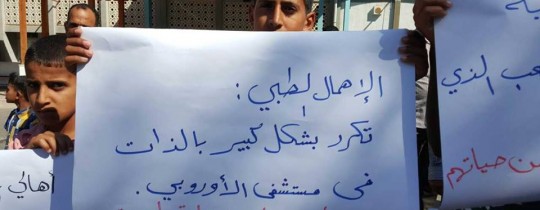 الإهمال الطبي :
تكرر بشكل كبير بالذات
في مستشفى الأوروبي .
الذي
حياتهم
أهالي